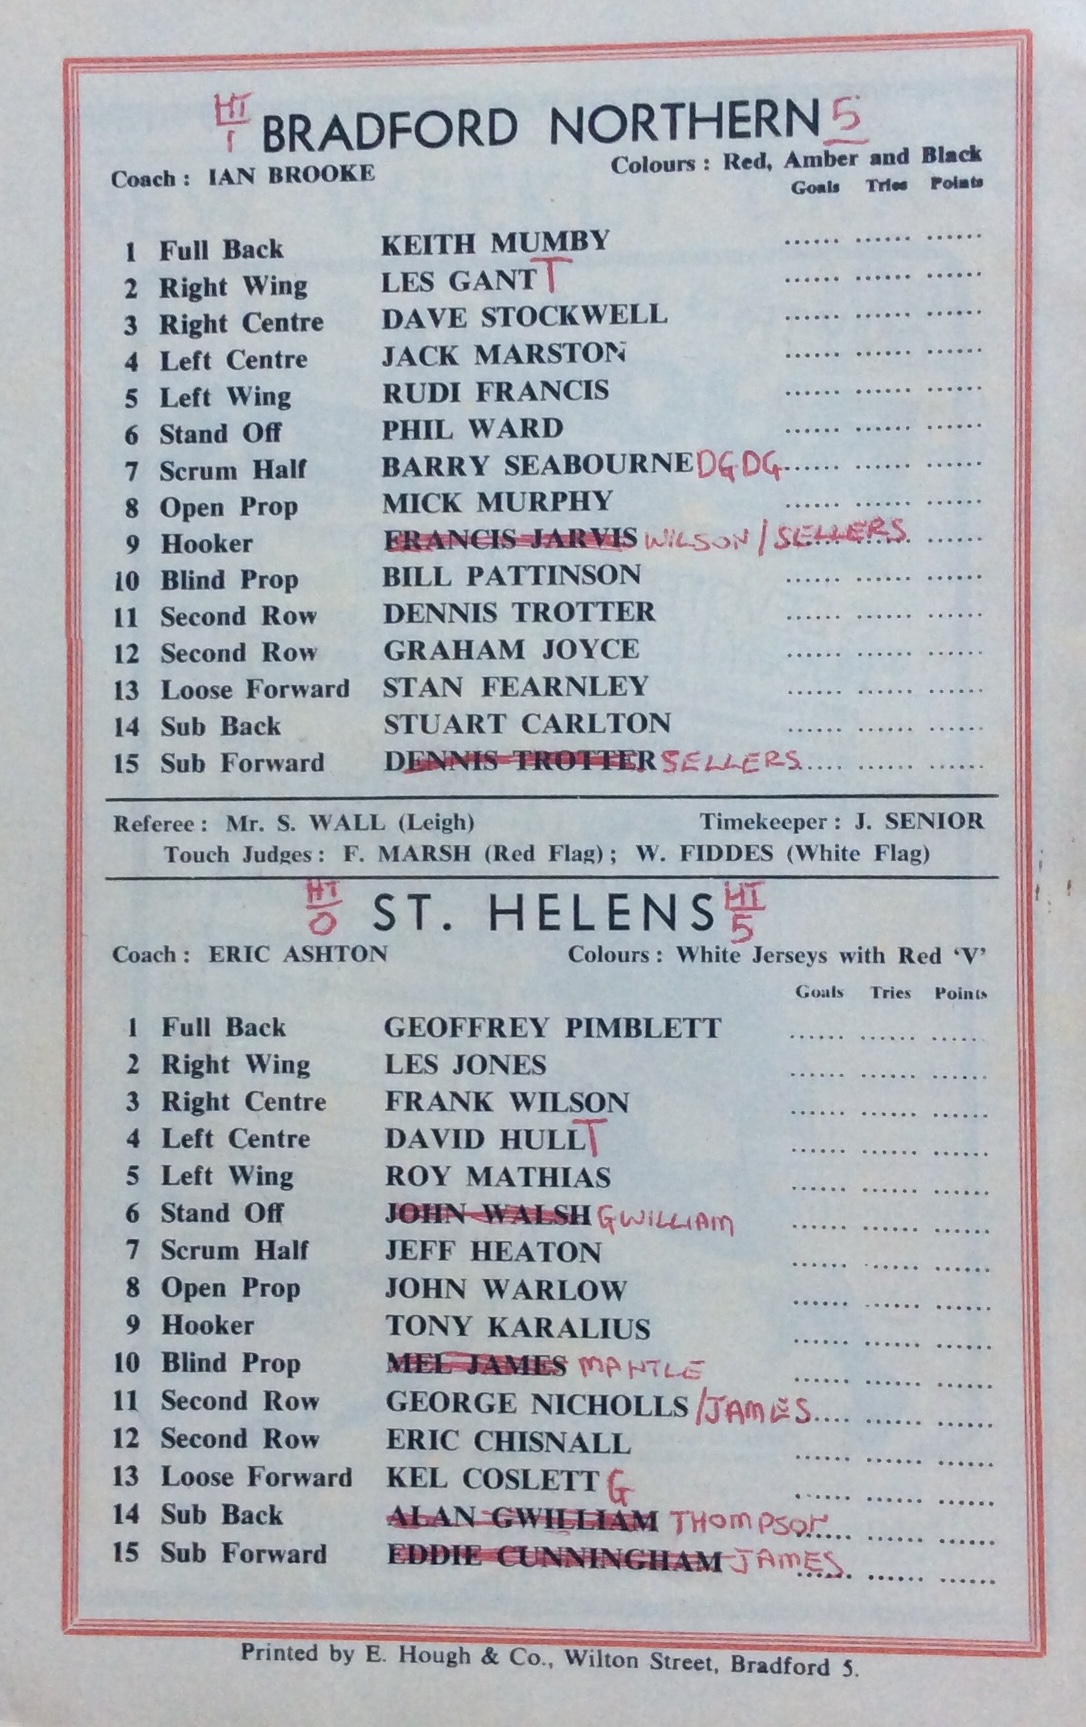 HT
1
BRADFORD NORTHERN 5
Coach : IAN BROOKE Colours : Red, Amber and Black
Goals Tries Points
1 Full Back KEITH MUMBY ...... ...... ......
2 Right Wing LES GANT T ...... ...... ......
3 Right Centre DAVE STOCKWELL ...... ...... ......
4 Left Centre JACK MARSTON ...... ...... ......
5 Left Wing RUDI FRANCIS ...... ...... ......
6 Stand Off PHIL WARD ...... ...... ......
7 Scrum Half BARRY SEABOURNE DG DG ...... ...... ......
8 Open Prop MICK MURPHY ...... ...... ......
9 Hooker FRANCIS JARVIS WILSON / SELLERS ......
10 Blind Prop BILL PATTINSON ...... ...... ......
11 Second Row DENNIS TROTTER ...... ...... ......
12 Second Row GRAHAM JOYCE ...... ...... ......
13 Loose Forward STAN FEARNLEY ...... ...... ......
14 Sub Back STUART CARLTON ...... ...... ......
15 Sub Forward DENNIS TROTTER SELLERS .... ...... ......
Referee : Mr. S. WALL (Leigh) Timekeeper : J. SENIOR
Touch Judges : F. MARSH (Red Flag) ; W. FIDDES (White Flag)
HT HT
0 ST. HELENS 5
Coach : ERIC ASHTON Colours : White Jerseys with Red ‘V’
Goals Tries Points
1 Full Back GEOFFREY PIMBLETT ...... ...... ......
2 Right Wing LES JONES ...... ...... ......
3 Right Centre FRANK WILSON ...... ...... ......
4 Left Centre DAVID HULL T ...... ...... ......
5 Left Wing ROY MATHIAS ...... ...... ......
6 Stand Off JOHN WALSH GWILLIAM ...... ...... ......
7 Scrum Half JEFF HEATON ...... ...... ......
8 Open Prop JOHN WARLOW ...... ...... ......
9 Hooker TONY KARALIUS ...... ...... ......
10 Blind Prop MEL JAMES MANTLE ...... ...... ......
11 Second Row GEORGE NICHOLLS / JAMES .... ...... ......
12 Second Row ERIC CHISNALL ...... ...... ......
13 Loose Forward KEL COSLETT G ...... ...... ......
14 Sub Back ALAN GWILLIAM THOMPSON ...... ......
15 Sub Forward EDDIE CUNNINGHAM JAMES ...... ...... ......
Printed by E. Hough & Co., Wilton Street, Bradford 5.